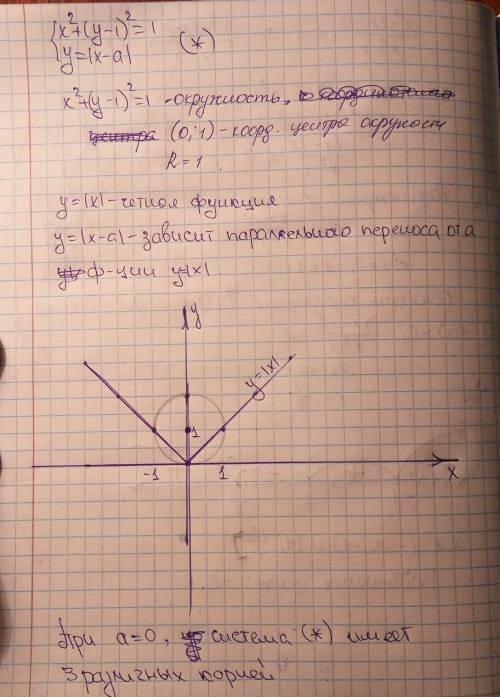 {x²+(y-1)²=1
{y=|x-a| (*)
x²+(y-1)²=1 -окружность,
(0;1)-коорд. центра окружности
R=1.
y=|x|-четная функция
y=|x-a|-зависит параллельного переноса от a
ф-ции y=|x|.
y
y=|x|
1
-1 1 x
При a=0, система (*) имеет
3 различных корней